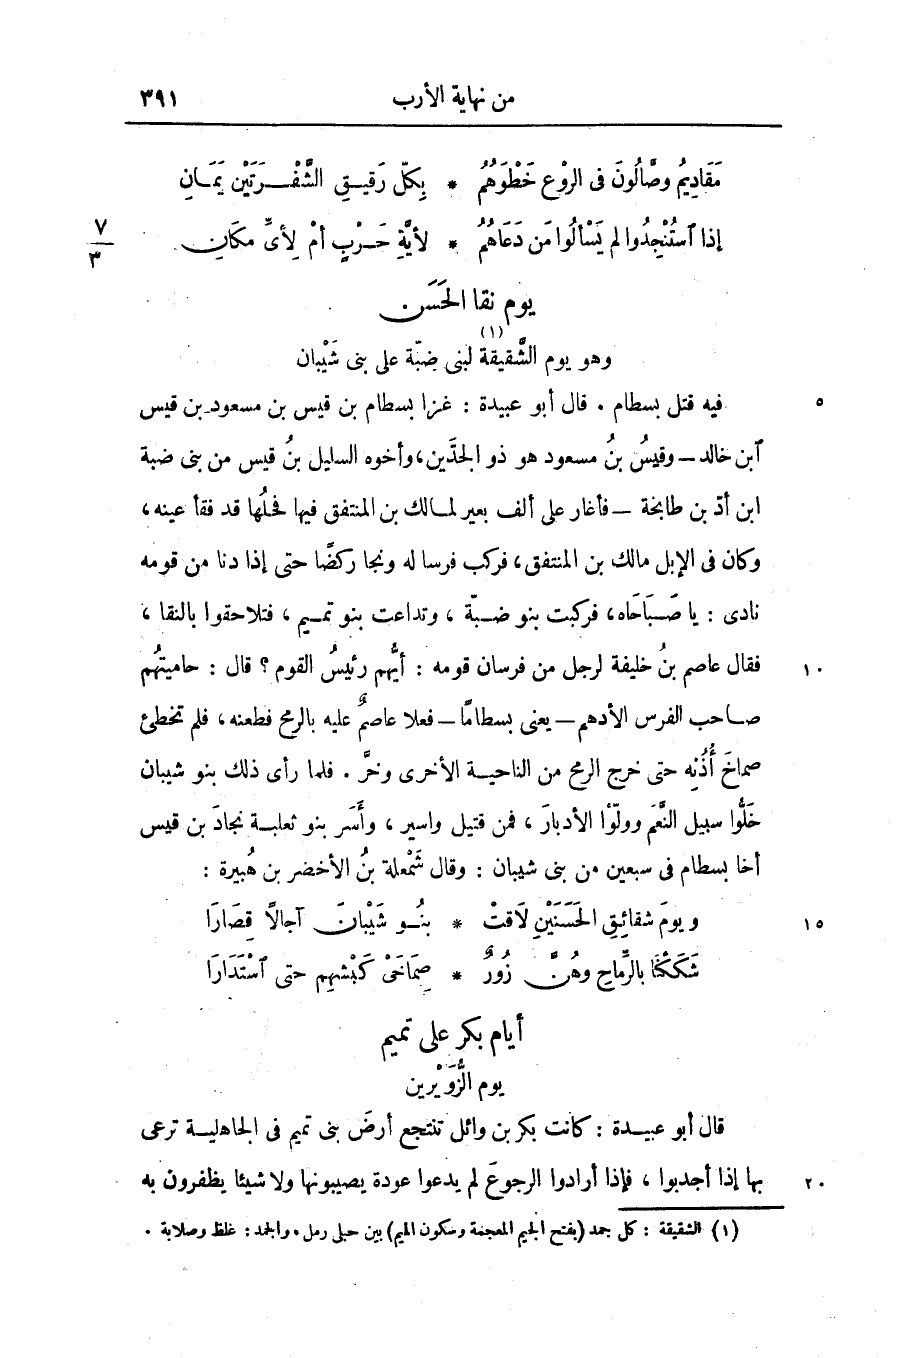 من نهاية الأرب ٣٩١
مَقَادِيمُ وصَّالُونَ فى الروْع خَطْوَهُمُ * بِكلّ رَقيـقِ الشَّفْـرَتَيْنِ يَمَـانِ
إذا ٱستُنْجِدُوا لم يَسْألُوا مَن دَعَاهُمُ * لأيَّةِ حَـرْبٍ أمْ لِأىِّ مكَانِ
٧
٣
يوم نقا الحَسَن
وهو يوم الشَّقيقة (١) لبنى ضبّة على بنى شَيْبان
فيه قتل بسطام . قال أبو عبيدة : غزا بسطام بن قيس بن مسعود بن قيس ٥
ٱبن خالد — وقيسُ بنُ مسعود هو ذو الجدَّين، وأخوه السليل بنُ قيس من بنى ضبة
ابن أدّ بن طابخة — فأغار على ألف بعير لمـالك بن المنتفق فيها فحلُها قد فقأ عينه ،
وكان فى الإبل مالك بن المنتفق، فركب فرسا له ونجا ركضًا حتى إذا دنا من قومه
نادى : يا صَـبَاحَاه، فركبت بنو ضـبّة ، وتداعت بنو تمـيم ، فتلاحقوا بالنقا ،
فقال عاصم بنُ خليفة لرجل من فرسان قومه : أيُّهم رئيسُ القوم ؟ قال : حاميتُهم ١٠
صـاحب الفرس الأدهم — يعنى بسطامًا — فعلا عاصمٌ عليه بالرمح فطعنه ، فلم تخطئ
صماخَ أُذُنِه حتى خرج الرمح من الناحيـة الأخرى وخرَّ . فلما رأى ذلك بنو شيبان
خَلُّوا سبيل النَّعَم وولّوْا الأدبارَ ، فمن قتيل واسير ، وأَسَر بنو ثعلبـة نجادَ بن قيس
أخا بسطام فى سبعين من بنى شيبان : وقال شَمْعلة بنُ الأخضر بن هُبيرة :
ويومَ شقائِقِ الحَسَنَيْنِ لاَقتْ * بنُـو شَيْبَانَ آجالًا قِصَارَا ١٥
شَكَكْنَا بالرِّماحِ وهُنَّ زُورٌ * صِمَاخَىْ كَبْشهِم حتى ٱسْتَدَارَا
أيام بكر على تميم
يوم الزُّوَيْرين
قال أبو عبيـدة : كانت بكر بن وائل تنتجع أرضَ بنى تميم فى الجاهليـة ترعى
بها إذا أجدبوا ، فإذا أرادوا الرجوعَ لم يدعوا عودة يصيبونها ولا شيئا يظفرون به ٢٠
(١) الشقيقة : كل جمد (بفتح الجيم المعجمة وسكون الميم) بين حبلى رمل . والجمد : غلظ وصلابة .